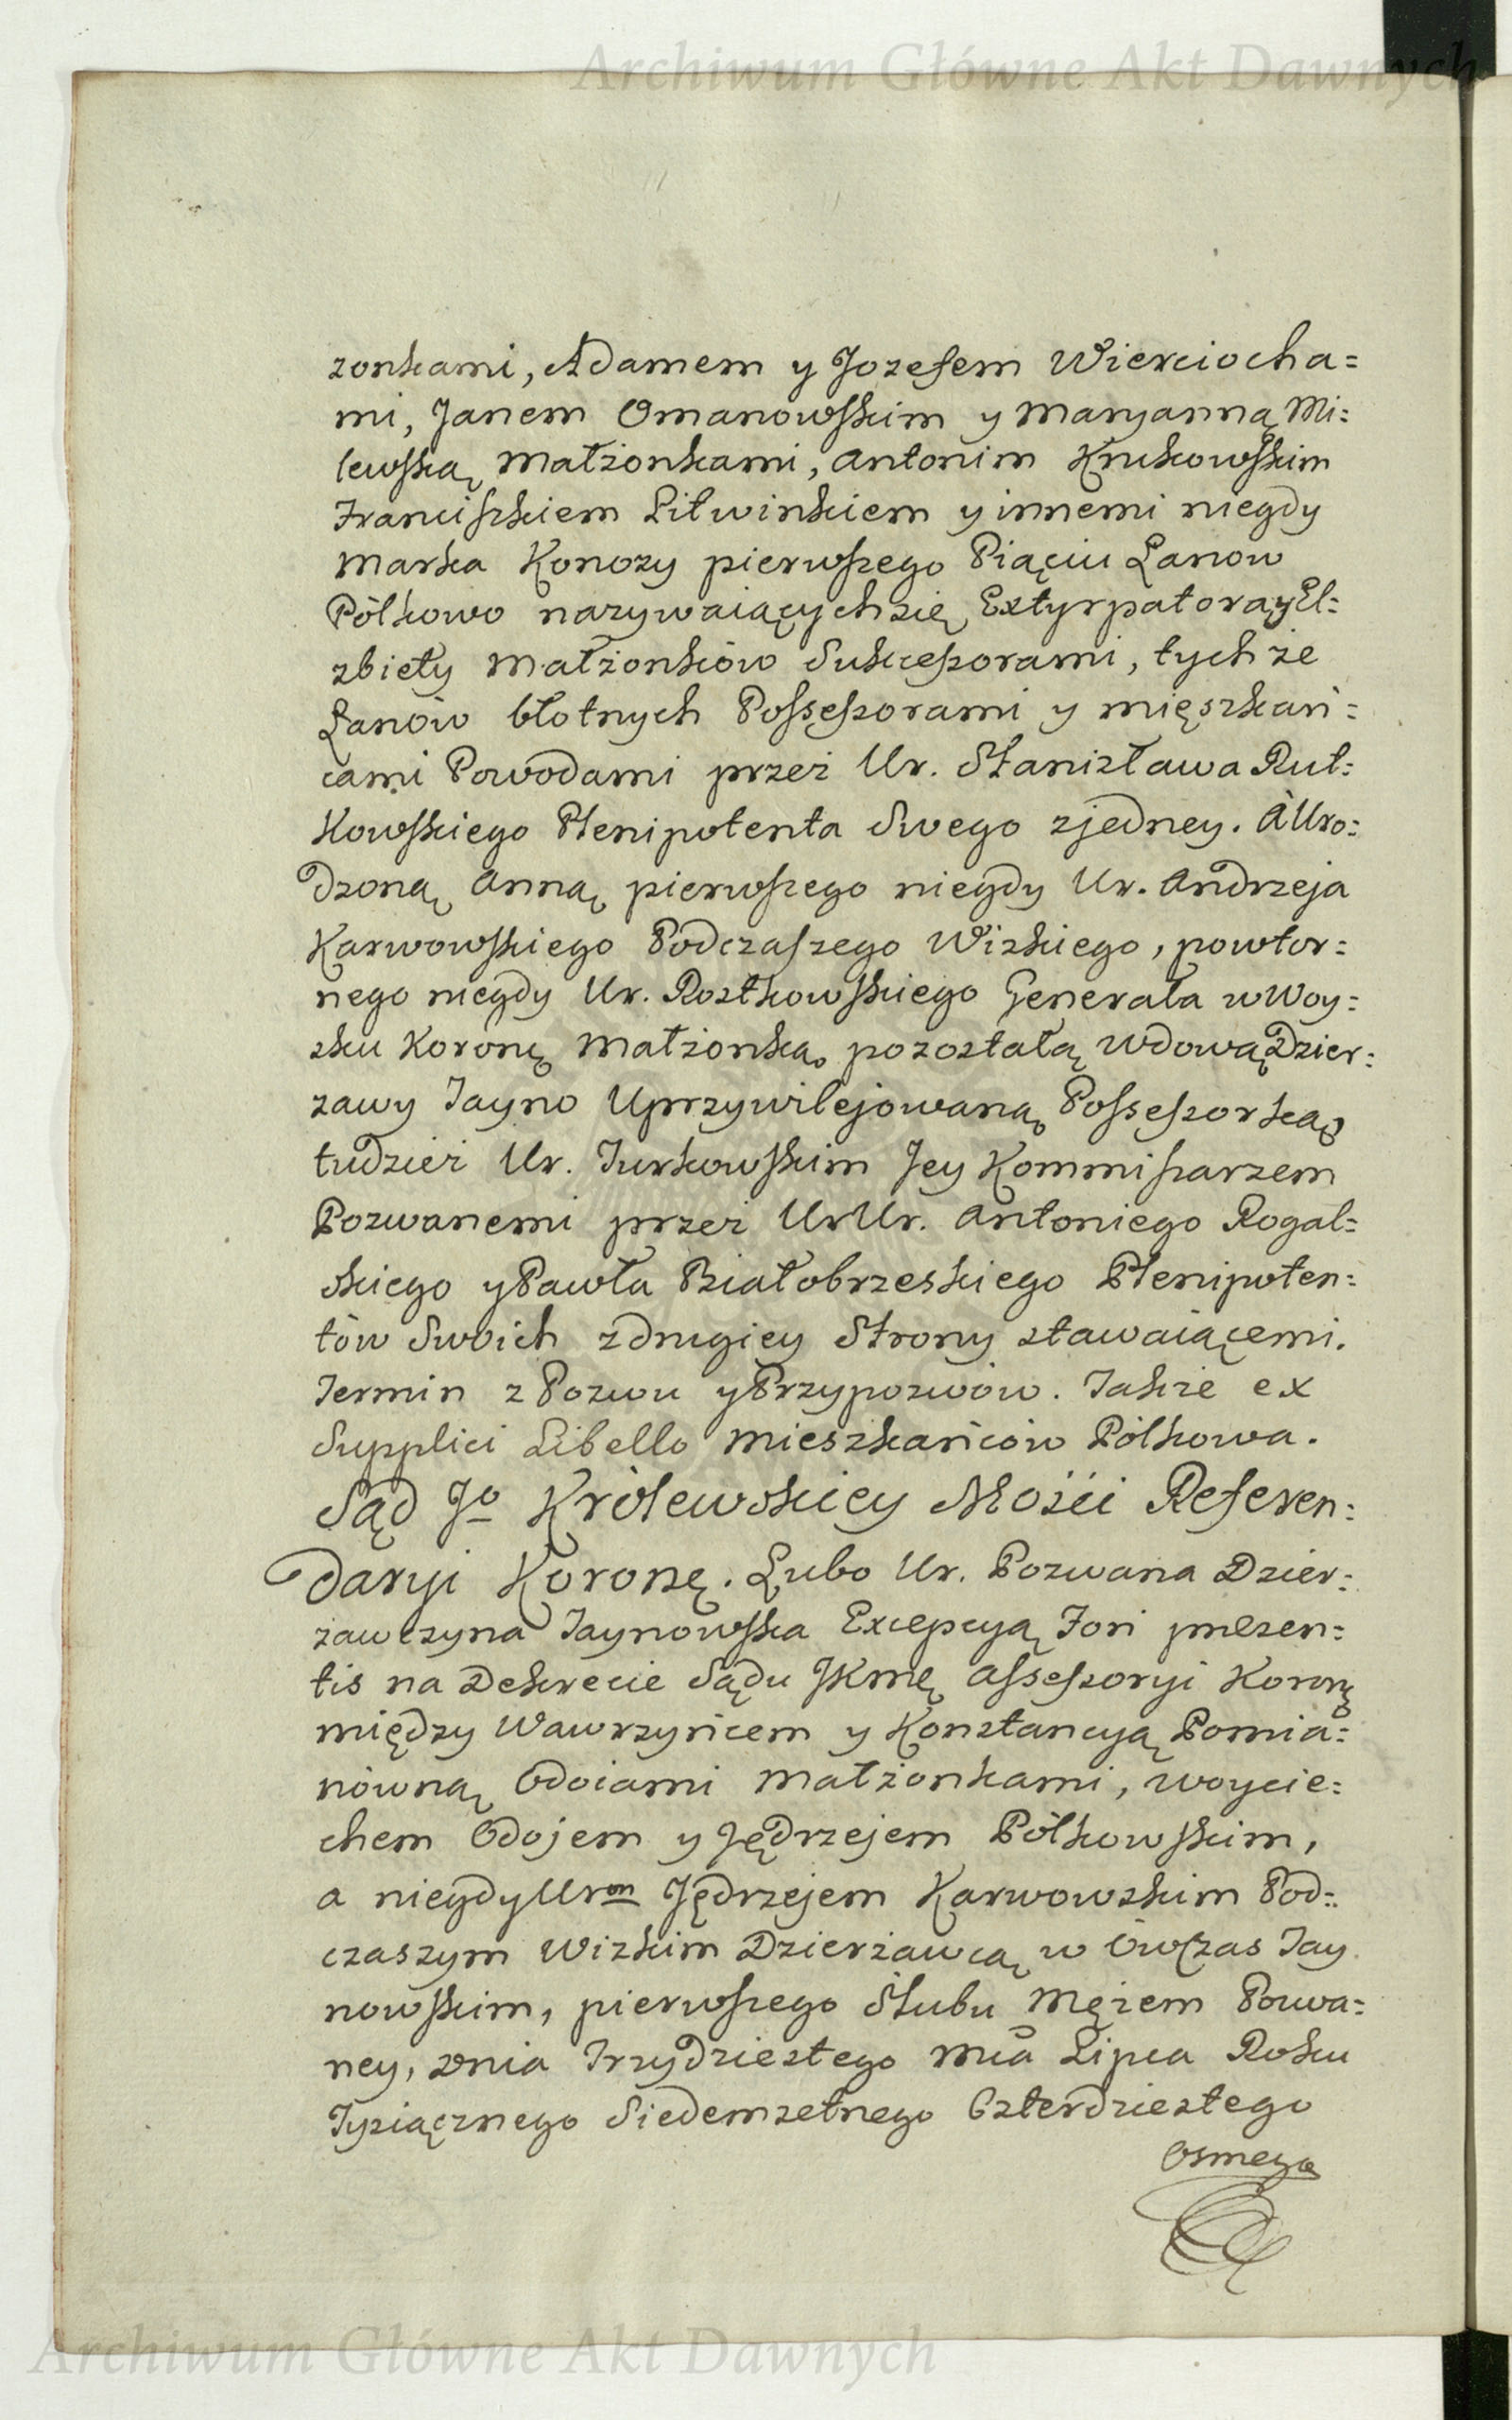 Archiwum Główne Akt Dawnych
zonkami, Adamem y Jozefem Wierciocha=
mi, Janem Omanowskim y Maryanną Mi=
lewską Małżonkami, Antonim Krukowskim
Franciszkiem Litwinkiem y innemi niegdy
Marka Konozy pierwszego Piąciu Łanow
Pólkowo nazywaiących się Extyrpatora y El=
zbiety Małżonków Sukcessorami, tych że
Łanów błotnych Possessorami y mięszkań=
cami Powodami przez Ur. Stanisława Rut=
kowskiego Plenipotenta Swego zjedney. A Uro=
dzoną Anną pierwszego niegdy Ur. Andrzeja
Karwowskiego Podczaszego Wizkiego, powtor=
nego niegdy Ur. Rostkowskiego Generała w Woy=
sku Koronę Małżonką pozostałą Wdową Dzier=
zawy Tayno Uprzywilejowaną Possessorką
tudzież Ur. Turkowskim Jey Kommissarzem
Pozwanemi przez UrUr. Antoniego Rogal=
skiego y Pawła Białobrzeskiego Plenipoten=
tów Swoich z drugiey Strony stawaiącemi.
Termin z Pozwu y Przypozwów. Takze ex
Supplici Libello Mieszkańców Pólkowa.
Sąd Jo Królewskiey Mości Referen=
daryi Koronę. Lubo Ur. Pozwana Dzier=
zawczyna Taynowska Excepcyą Fori praesen=
tis na Dekrecie Sądu JKmę Assessoryi Koronę
między Wawrzyńcem y Konstancyą Pomia=
nówną Odoiami Małżonkami, Woycie=
chem Odojem y Jędrzejem Pólkowskim,
a niegdy Urom Jędrzejem Karwowskim Pod=
czaszym Wizkim Dzierżawcą w ówczas Tay
nowskim, pierwszego Ślubu Mężem Pozwa=
ney, dnia Trzydziestego Mca Lipca Roku
Tysiącznego Siedemsetnego Czterdziestego
Osmego
Archiwum Główne Akt Dawnych